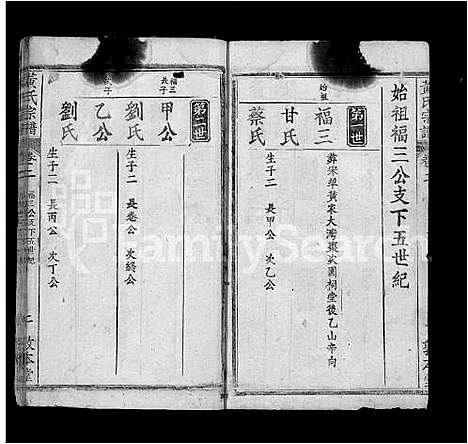 黃氏宗譜
卷二
敦本堂
始祖福三公支下五世紀
第一世
始祖
福三
甘氏
蔡氏
葬宋埠黃家大灣東邊園祠堂後乙山辛向
生子二 長甲公 次乙公
第二世
福三長子
甲公
劉氏
生子二 長卷公 次終公
次子
乙公
劉氏
生子二 長丙公 次丁公
黃氏宗譜
卷二
福三公支下五世紀
二
敦本堂
FamilySearch